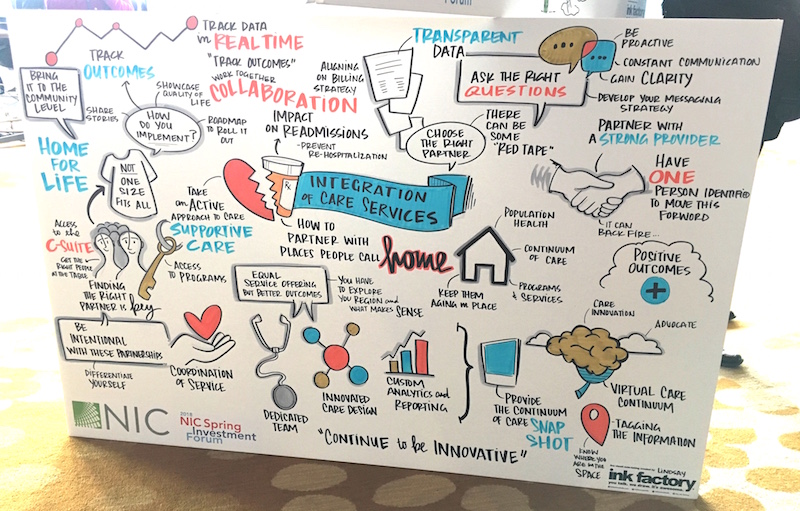 Forum
ink factory
TRACK DATA
in REAL TIME
"TRACK OUTCOMES"
WORK TOGETHER
COLLABORATION
TRACK
OUTCOMES
BRING
IT TO THE
COMMUNITY
LEVEL
SHARE
STORIES
SHOWCASE
QUALITY OF
LIFE
HOW DO
YOU
IMPLEMENT?
ROADMAP
TO ROLL IT
OUT
ALIGNING
ON BILLING
STRATEGY
TRANSPARENT
DATA
ASK THE RIGHT
QUESTIONS
BE
PROACTIVE
CONSTANT COMMUNICATION
GAIN CLARITY
DEVELOP YOUR MESSAGING
STRATEGY
IMPACT
ON READMISSIONS
-PREVENT
RE-HOSPITALIZATION
CHOOSE
THE RIGHT
PARTNER
THERE
CAN BE
SOME
"RED TAPE"
PARTNER WITH
A STRONG PROVIDER
HAVE
ONE
PERSON IDENTIFIED
TO MOVE THIS
FORWARD
IT CAN
BACK FIRE...
HOME
FOR
LIFE
NOT
ONE
SIZE
FITS ALL
TAKE
an ACTIVE
APPROACH TO CARE
SUPPORTIVE
CARE
Rx
INTEGRATION
OF CARE SERVICES
HOW TO
PARTNER WITH
PLACES PEOPLE CALL
home
POPULATION
HEALTH
CONTINUUM
OF CARE
PROGRAMS
& SERVICES
KEEP THEM
AGING in PLACE
POSITIVE
OUTCOMES
ACCESS
to the
C-SUITE
GET THE
RIGHT PEOPLE
AT THE TABLE
FINDING
THE RIGHT
PARTNER is key
ACCESS
TO PROGRAMS
EQUAL
SERVICE OFFERING
BUT BETTER OUTCOMES
YOU HAVE
TO EXPLORE
YOU REGION and
WHAT MAKES SENSE
BE
INTENTIONAL
WITH THESE PARTNERSHIPS
DIFFERENTIATE
YOURSELF
COORDINATION
OF SERVICE
DEDICATED
TEAM
INNOVATED
CARE DESIGN
CUSTOM
ANALYTICS and
REPORTING
PROVIDE
THE CONTINUUM
OF CARE SNAP
SHOT
CARE
INNOVATION
ADVOCATE
VIRTUAL CARE
CONTINUUM
-TAGGING
THE INFORMATION
KNOW
WHERE YOU
ARE IN THE
SPACE
"CONTINUE to be INNOVATIVE"
NIC
2018
NIC Spring
Investment
Forum
LINDSAY
ink factory